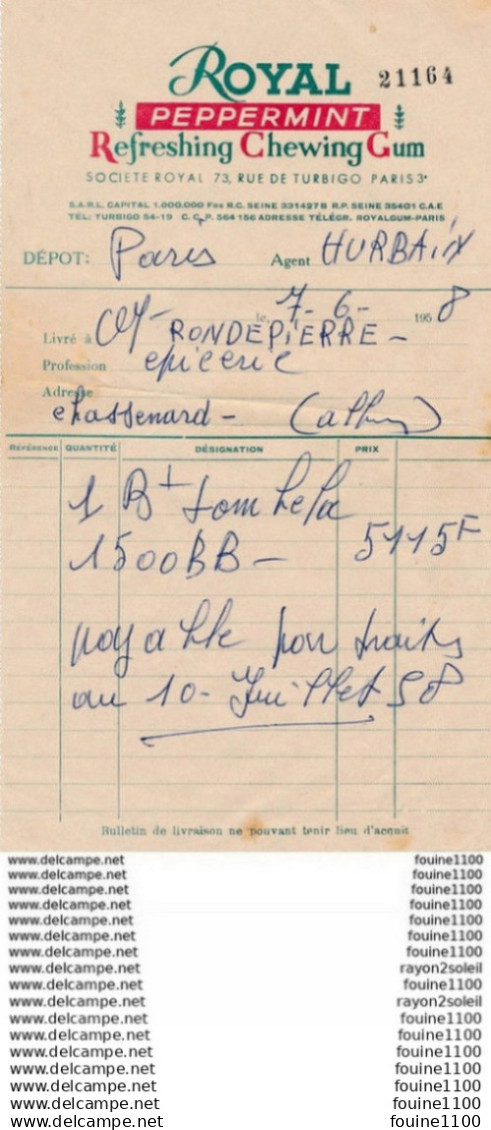 ROYAL 21164
PEPPERMINT
Refreshing Chewing Gum
SOCIETE ROYAL 73, RUE DE TURBIGO PARIS 3e
S.A.R.L. CAPITAL 1.000.000 Frs R.C. SEINE 331427B R.P. SEINE 35401 C.A.E
TÉL: TURBIGO 54-19 C.C.P. 564 156 ADRESSE TÉLÉGR. ROYALGUM-PARIS
DÉPOT: Paris Agent HURBAIN
le 7-6- 1958
Livré à RONDEPIERRE -
Profession epicerie
Adresse
chassenard - (allier)
RÉFÉRENCE QUANTITÉ DÉSIGNATION PRIX
1 Bt
1500BB - 5115F
payable par traite
au 10 - Juillet 58
Bulletin de livraison ne pouvant tenir lieu d'acquit
www.delcampe.net fouine1100
www.delcampe.net fouine1100
www.delcampe.net fouine1100
www.delcampe.net fouine1100
www.delcampe.net fouine1100
www.delcampe.net fouine1100
www.delcampe.net fouine1100
www.delcampe.net rayon2soleil
www.delcampe.net fouine1100
www.delcampe.net rayon2soleil
www.delcampe.net fouine1100
www.delcampe.net fouine1100
www.delcampe.net fouine1100
www.delcampe.net fouine1100
www.delcampe.net fouine1100
www.delcampe.net fouine1100
www.delcampe.net fouine1100